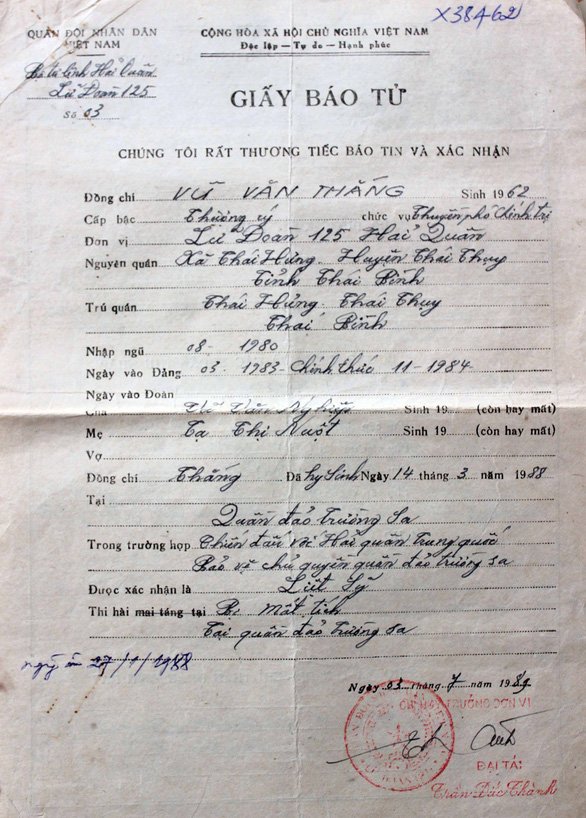 X38462
QUÂN ĐỘI NHÂN DÂN
VIỆT NAM
Bộ tư lệnh Hải Quân
Lữ Đoàn 125
Số 03
CỘNG HÒA XÃ HỘI CHỦ NGHĨA VIỆT NAM
Độc lập — Tự do — Hạnh phúc
GIẤY BÁO TỬ
CHÚNG TÔI RẤT THƯƠNG TIẾC BÁO TIN VÀ XÁC NHẬN
Đồng chí VŨ VĂN THẮNG Sinh 1962
Cấp bậc Thượng úy chức vụ Thuyền phó Chính trị
Đơn vị Lữ Đoàn 125 Hải Quân
Nguyên quán Xã Thái Hưng Huyện Thái Thụy
Tỉnh Thái Bình
Trú quán Thái Hưng Thái Thụy
Thái Bình
Nhập ngũ 08 - 1980
Ngày vào Đảng 03 - 1983 - Chính thức 11 - 1984
Ngày vào Đoàn
Cha Vũ Văn Sinh 19 (còn hay mất)
Mẹ Tạ Thị Nuột Sinh 19 (còn hay mất)
Vợ
Đồng chí Thắng Đã hy sinh Ngày 14 tháng 3 năm 1988
Tại
Quần đảo trường Sa
Trong trường hợp Chiến đấu với Hải quân Trung quốc
Bảo vệ chủ quyền quần đảo trường sa
Được xác nhận là Liệt Sỹ
Thi hài mai táng tại Bị mất tích
Tại quần đảo trường sa
27/1/1988
Ngày 03 tháng 7 năm 1989
TRƯỞNG ĐƠN VỊ
ĐẠI TÁ
Trần Đức Thành